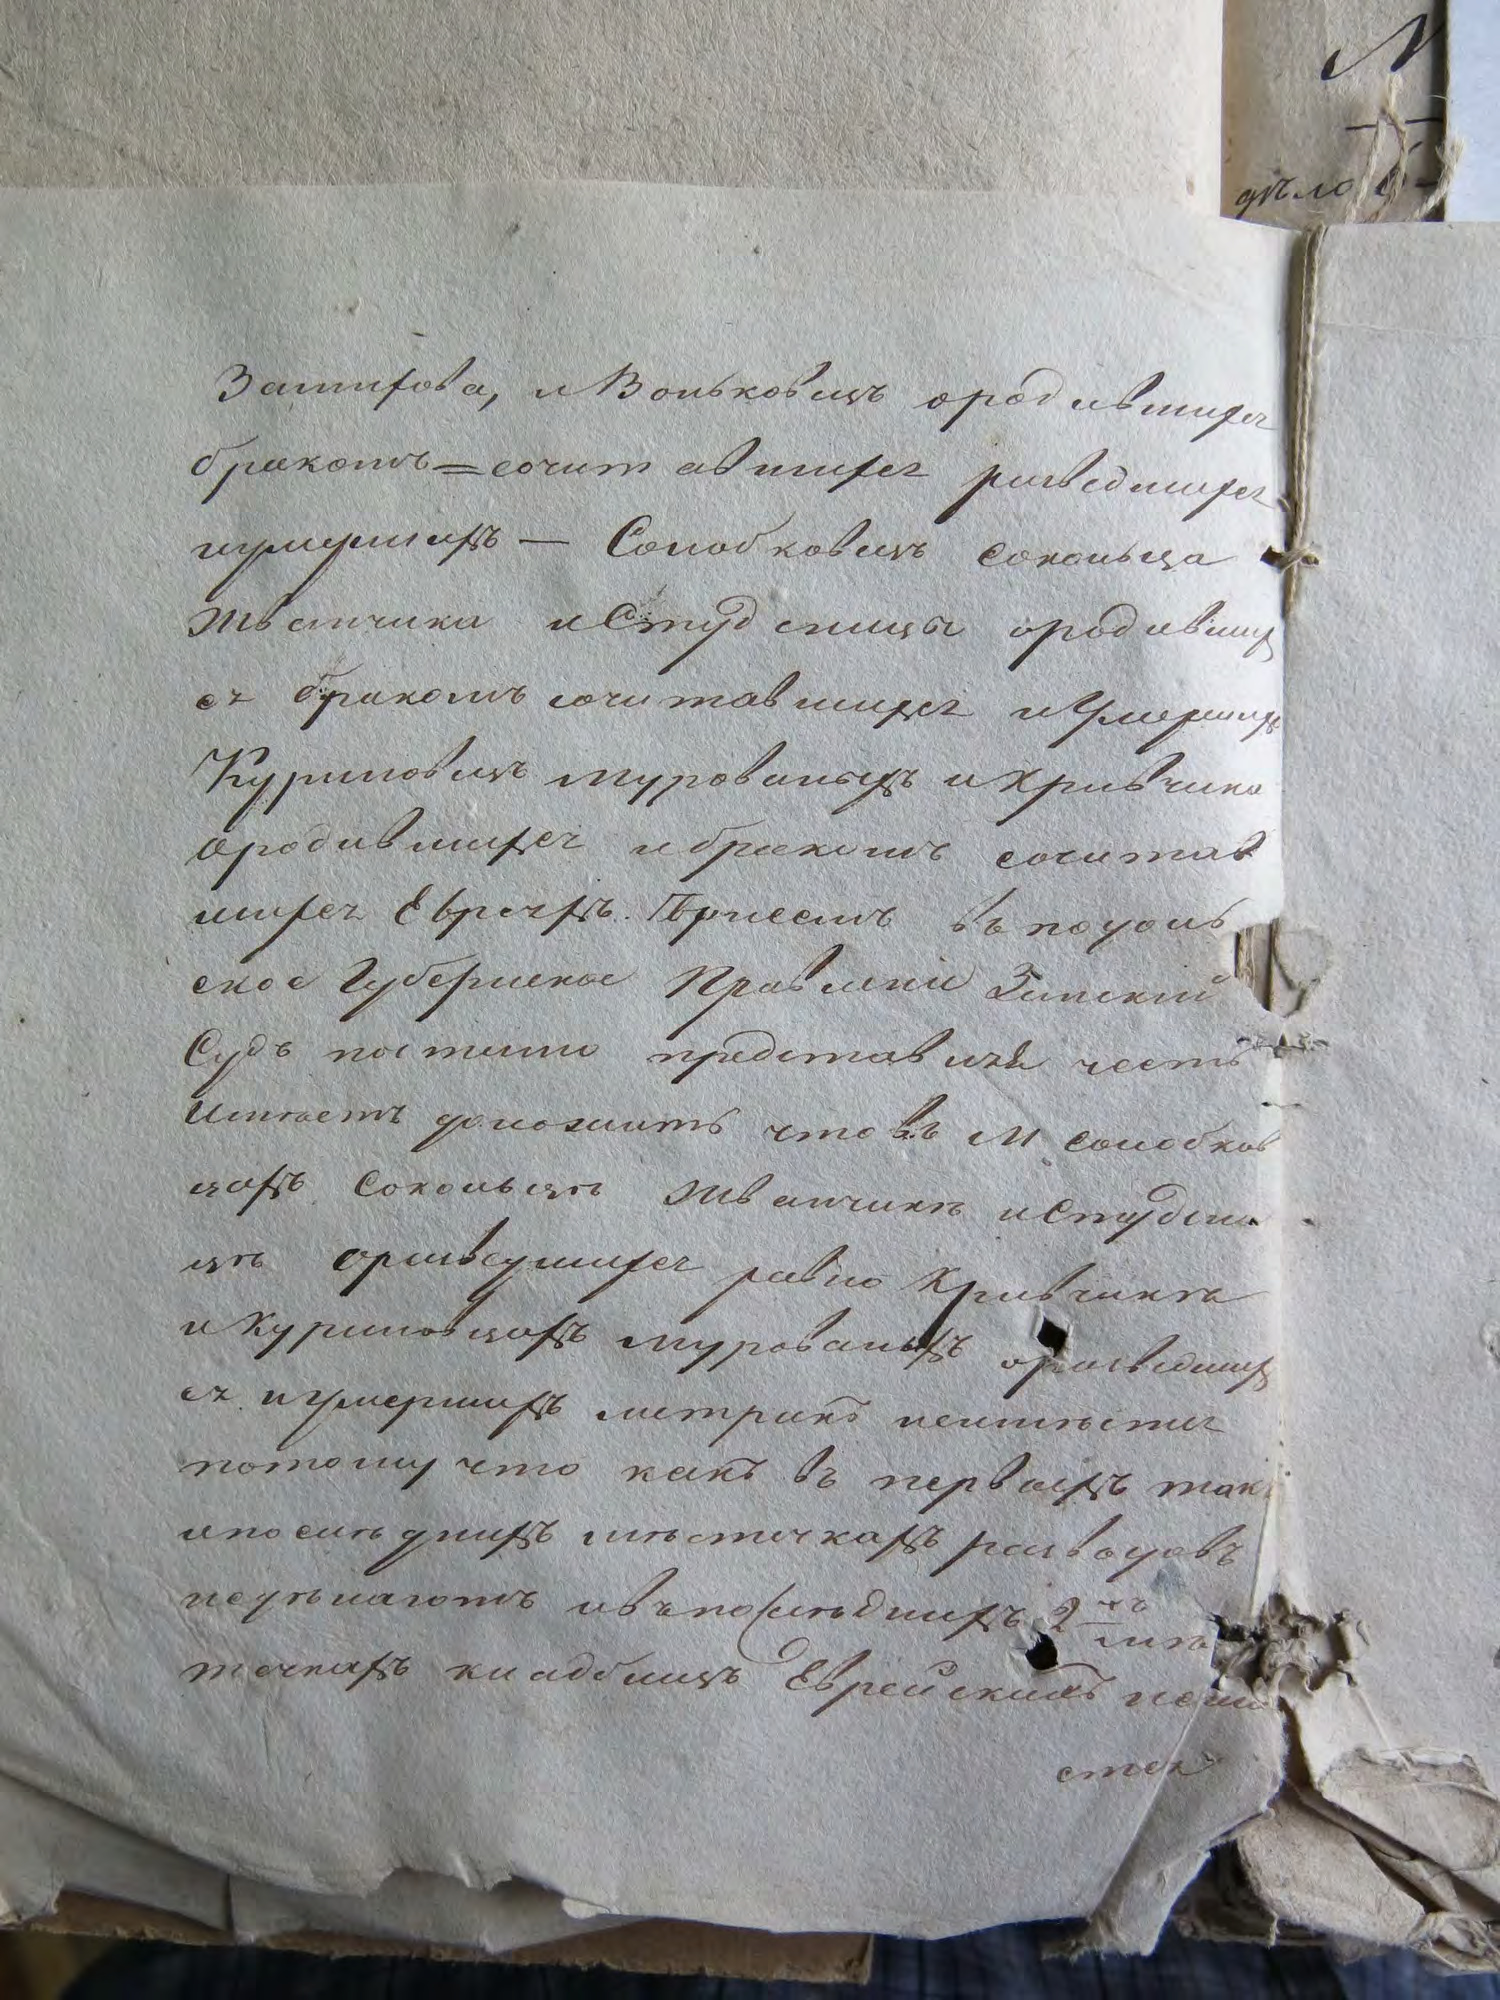 М
дѣло
Замихова, и Воньковецъ о родившихся
бракомъ = сочитавшихся розведшихся
иумершихъ — Солобковецъ Сокольца
Жванчика и Студеницы ородивших
ся бракомъ сочитавшихся и Умерших
Куриловецъ мурованыхъ и Кривчика
ородившихся и бракомъ сочитав
шихся Евреяхъ. въ подоль
ское Губернское Правленіе Земскій
Судъ почтенно представляя честь
имѣетъ доложить что въ М Солобков
цахъ Сокольцѣ Жванчикѣ и Студени
цѣ оразведшихся равно Кривчикѣ
и Куриловцахъ мурованыхъ оразведших
ся иумершихъ метрикъ неимѣется
потому что какъ въ первыхъ такъ
ипослѣднихъ мѣстечкахъ разводовъ
недѣлаютъ ивъпослѣднихъ 2хъ мѣс
течкахъ кладбищъ Еврейскихъ неим
ется